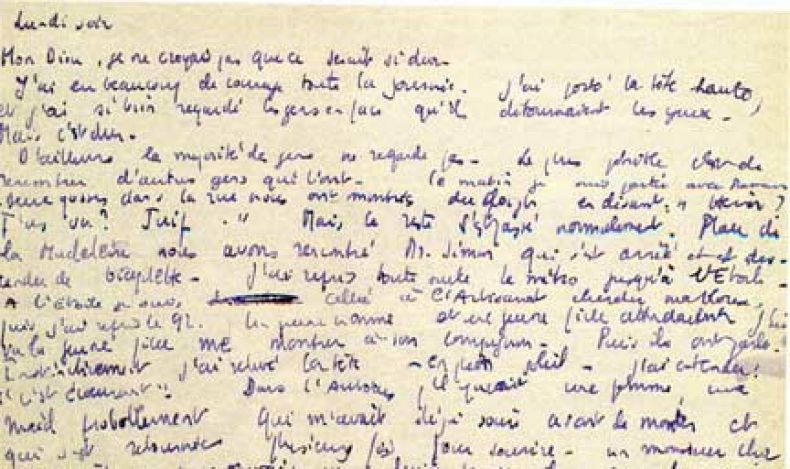 Lundi soir
Mon Dieu, je ne croyais pas que ce serait si dur.
J'ai eu beaucoup de courage toute la journée. J'ai porté la tête haute,
et j'ai si bien regardé les gens en face qu'ils détournaient les yeux.
Mais c'est dur.
D'ailleurs la majorité des gens ne regarde pas. Le plus pénible c'est de
rencontrer d'autres gens qui l'ont. Ce matin je suis partie avec Maman.
deux gosses dans la rue nous ont montrés du doigt en disant : " Hein ?
T'as vu ? Juif. " Mais le reste s'est passé normalement. Place de
la Madeleine nous avons rencontré M. Simon qui s'est arrêté et est des-
cendu de bicyclette. J'ai repris toute seule le métro jusqu'à l'Étoile.
A l'Étoile je suis allée à l'Artisanat chercher ma blouse,
puis j'ai repris le 92. Un jeune homme et une jeune fille attendaient, j'ai
vu la jeune fille me montrer à son compagnon. Puis ils ont parlé.
Instinctivement j'ai relevé la tête - en plein soleil - j'ai entendu :
" C'est écœurant ". Dans l'autobus, il y avait une femme, une
maid probablement qui m'avait déjà souri avant de monter et
qui s'est retournée plusieurs fois pour sourire - un monsieur chic